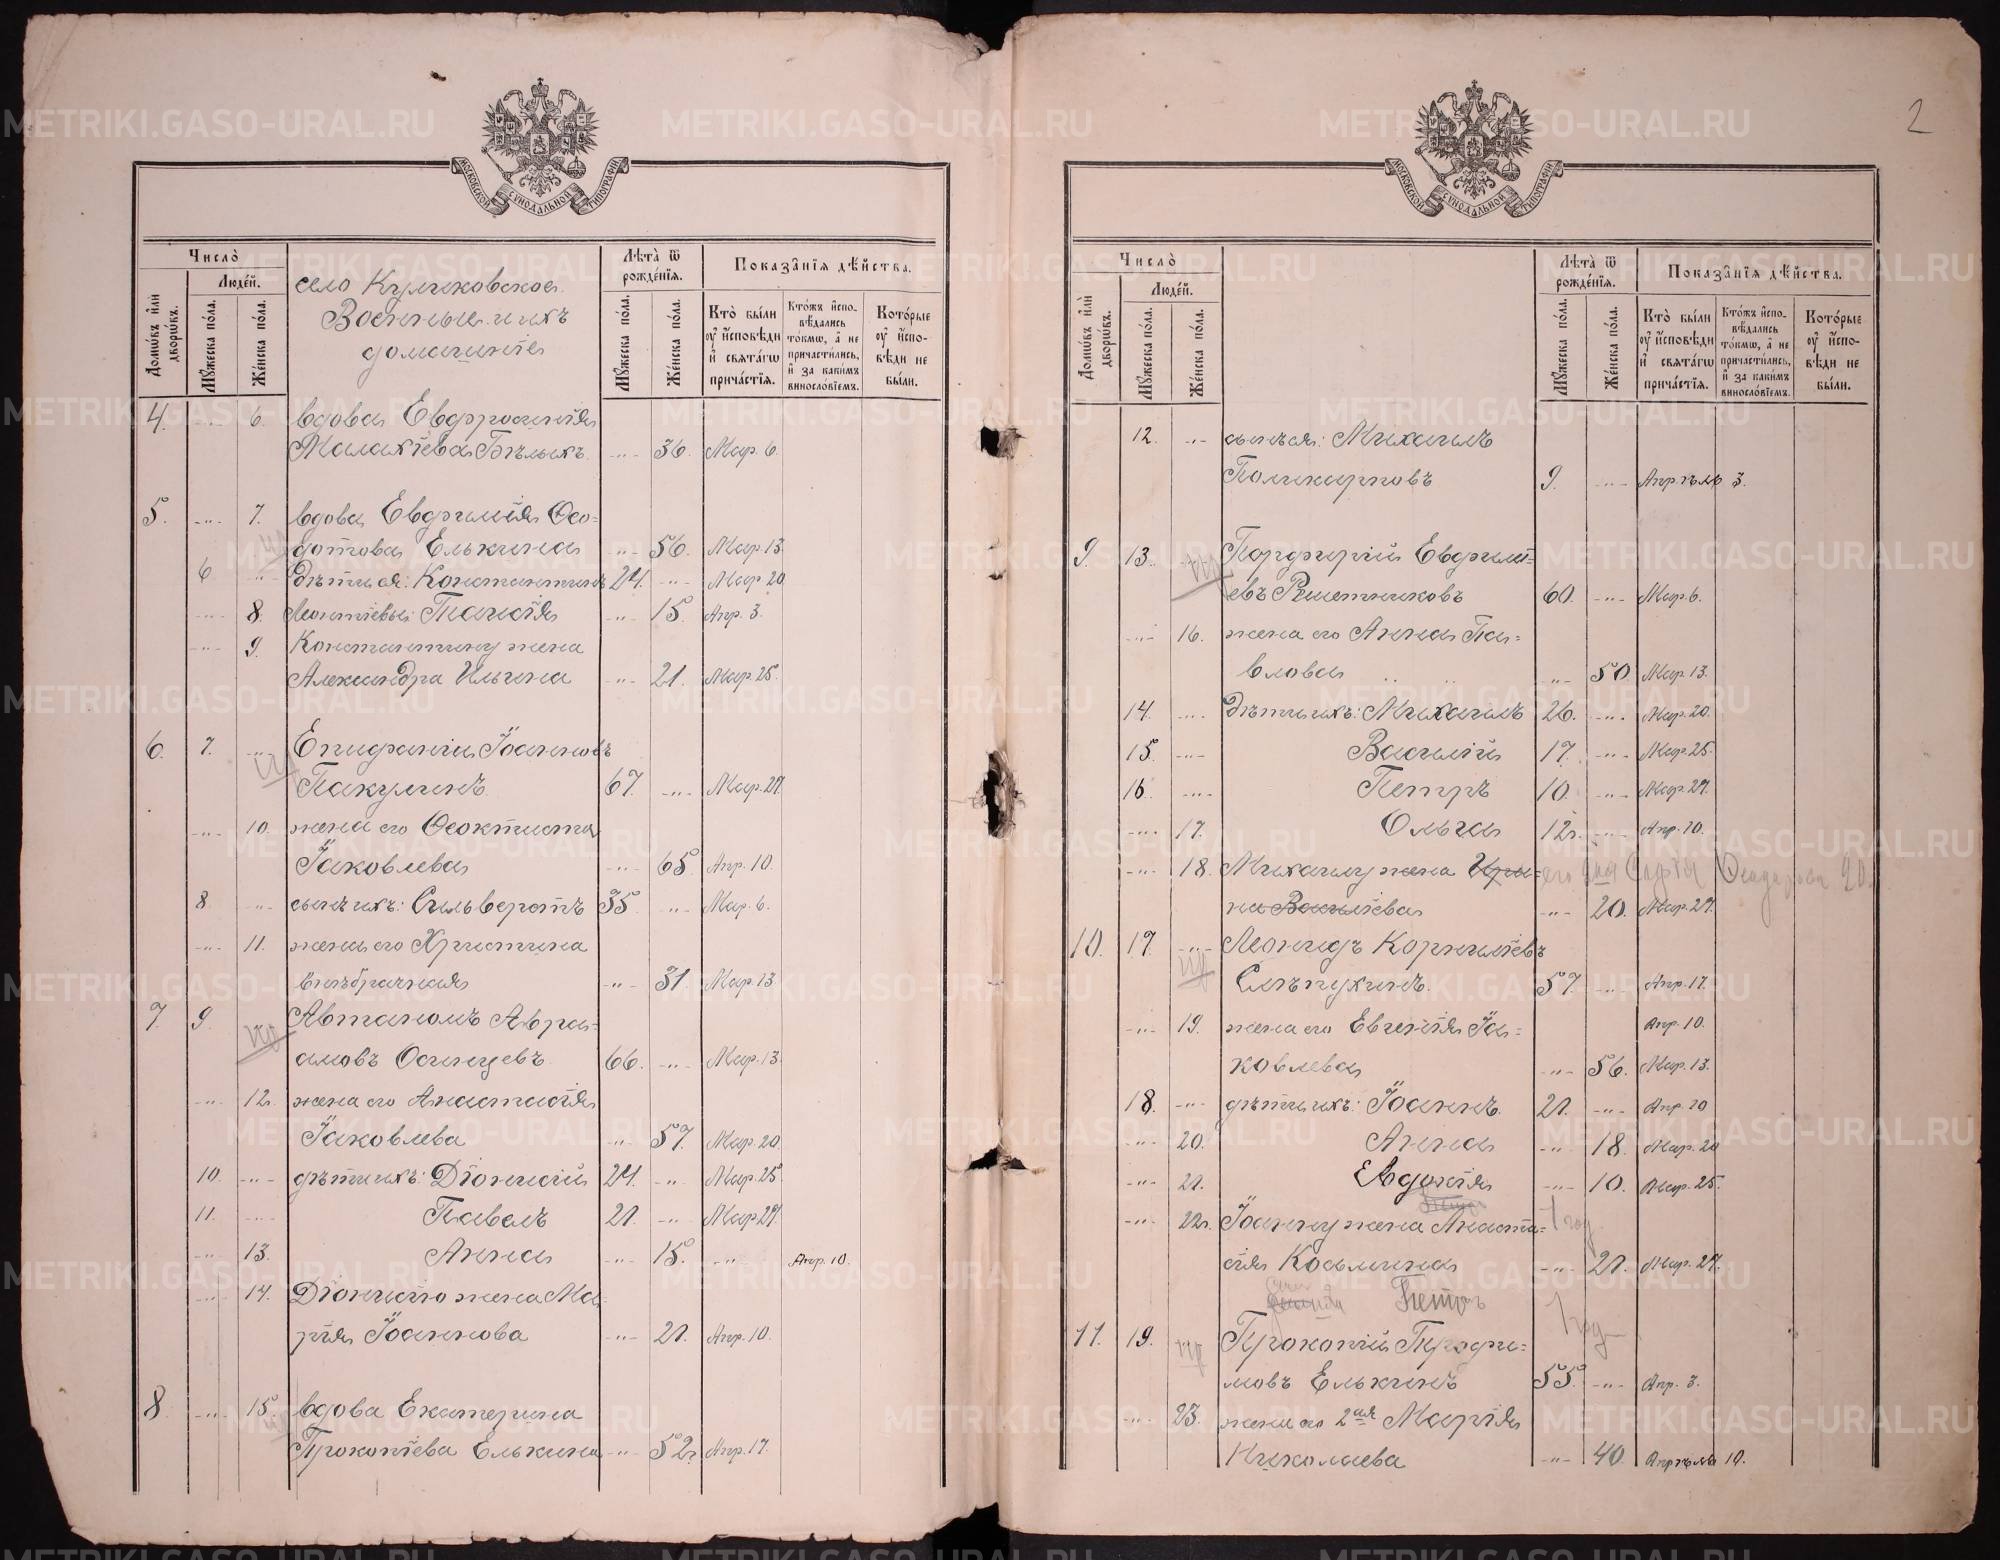 METRIKI.GASO-URAL.RU
МОСКОВСКОЙ СѴНОДАЛЬНОЙ ТИПОГРАФІИ
Число
Людей.
Домѡвъ или дворѡвъ.
Мꙋжеска пола.
Женска пола.
село Куликовское
Военные и ихъ
домашніе
Лѣта ѿ рожденїѧ.
Мꙋжеска пола.
Женска пола.
Показанїѧ дѣйства.
Кто были оу исповѣди и свѧтагѡ причастїѧ.
Ктожъ исповѣдались токмѡ, а не причастились, и за какимъ винословїемъ.
Которые оу исповѣди не были.
4. -"- 6. вдова Евфросинія
Малахіева Бѣлыхъ. -"- 36. Мар. 6.
5. -"- 7. вдова Евфимія Ѳео=
дотова Елькина -"- 56. Мар. 13
6 -"- дѣти ея: Константинъ 24. -"- Мар. 20
-"- 8. Леонтіевы: Таисія -"- 15. Апр. 3.
-"- 9. Константину жена
Александра Ильина -"- 21. Мар. 25.
6. 7. -"- Епифаній Іоанновъ
Пакулинъ. 67. -"- Мар. 27.
-"- 10. жена его Ѳеоктиста
Іаковлева -"- 65 Апр. 10.
8. -"- сынъ ихъ: Сильверстъ 35 -"- Мар. 6.
-"- 11. жена его Христина
внѣбрачная -"- 31. Мар. 13
7. 9. Автаномъ Авра=
амовъ Осинцевъ. 66. -"- Мар. 13
-"- 12. жена его Анастасія
Іаковлева -"- 57. Мар. 20
10. -"- дѣти ихъ: Діонисій 24. -"- Мар. 25
11. -"- Павелъ 21. -"- Мар. 27.
-"- 13. Анна -"- 15. -"- Апр. 10.
-"- 14. Діонисію жена Ма=
рія Іоаннова -"- 21. Апр. 10.
8. -"- 15. вдова Екатерина
Прокопіева Елькина -"- 52. Апр. 17.
2
МОСКОВСКОЙ СѴНОДАЛЬНОЙ ТИПОГРАФІИ
Число
Людей.
Домѡвъ или дворѡвъ.
Мꙋжеска пола.
Женска пола.
Лѣта ѿ рожденїѧ.
Мꙋжеска пола.
Женска пола.
Показанїѧ дѣйства.
Кто были оу исповѣди и свѧтагѡ причастїѧ.
Ктожъ исповѣдались токмѡ, а не причастились, и за какимъ винословїемъ.
Которые оу исповѣди не были.
12. -"- сынъ ея: Михаилъ
Поликарповъ 9. -"- Апрѣля 3.
9. 13. Порфирій Евфимі=
евъ Рѣшетниковъ 60. -"- Мар. 6.
-"- 16. жена его Анна Па=
влова -"- 50. Мар. 13.
14. -"- дѣти ихъ: Михаилъ 26. -"- Мар. 20.
15. -"- Василій 17. -"- Мар. 25.
16. -"- Петръ 10. -"- Мар. 27.
-"- 17. Ольга 12. -"- Апр. 10.
-"- 18. Михаилу жена Ири=
на Василіева -"- 20. Мар. 27.
10. 17. -"- Леонидъ Корниліевъ
Слѣпухинъ. 57. -"- Апр. 17.
-"- 19. жена его Евгенія Іа= Апр. 10.
ковлева -"- 56. Мар. 13.
18. -"- дѣти ихъ: Іоаннъ. 21. -"- Апр. 10
-"- 20. Анна -"- 18. Мар. 20
-"- 21. Евдокія -"- 10. Мар. 25.
-"- 22. Іоанну жена Анаста= 1 год
сія Косьмина -"- 21. Мар. 27.
Петръ 1 год
11. 19. Прокопій Трофи=
мовъ Елькинъ 55. -"- Апр. 3.
-"- 23. жена его 2ая Марія
Николаева -"- 40. Апрѣля 10.